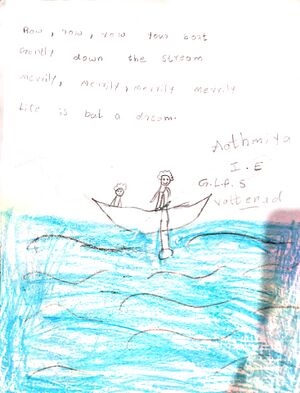 Row, row, row your boat
Gently down the stream
Merrily, merrily, merrily merrily
Life is but a dream.
Aathmiya
I. E
G.L.P.S